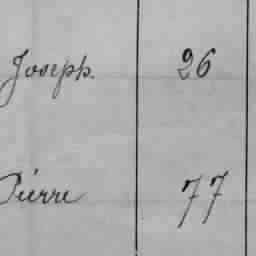 Joseph. 26
Pierre 77